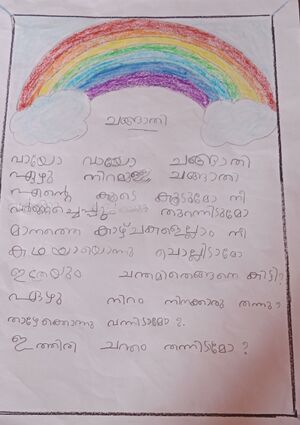 ചങ്ങാതി
വായോ വായോ ചങ്ങാതി
ഏഴു നിറമുള്ള ചങ്ങാതി
എന്റെ കൂടെ കൂടുമോ നീ
തുറന്നിടുമോ
മാനത്തെ കാഴ്ചകളെല്ലാം നീ
കഥയായൊന്നു ചൊല്ലിടാമോ
ഇത്രയും ചന്തമിതെങ്ങനെ കിട്ടി?
ഏഴു നിറം നിനക്കാരു തന്നു?
താഴേക്കൊന്നു വന്നിടാമോ?
ഇത്തിരി ചന്തം തന്നിടുമോ?